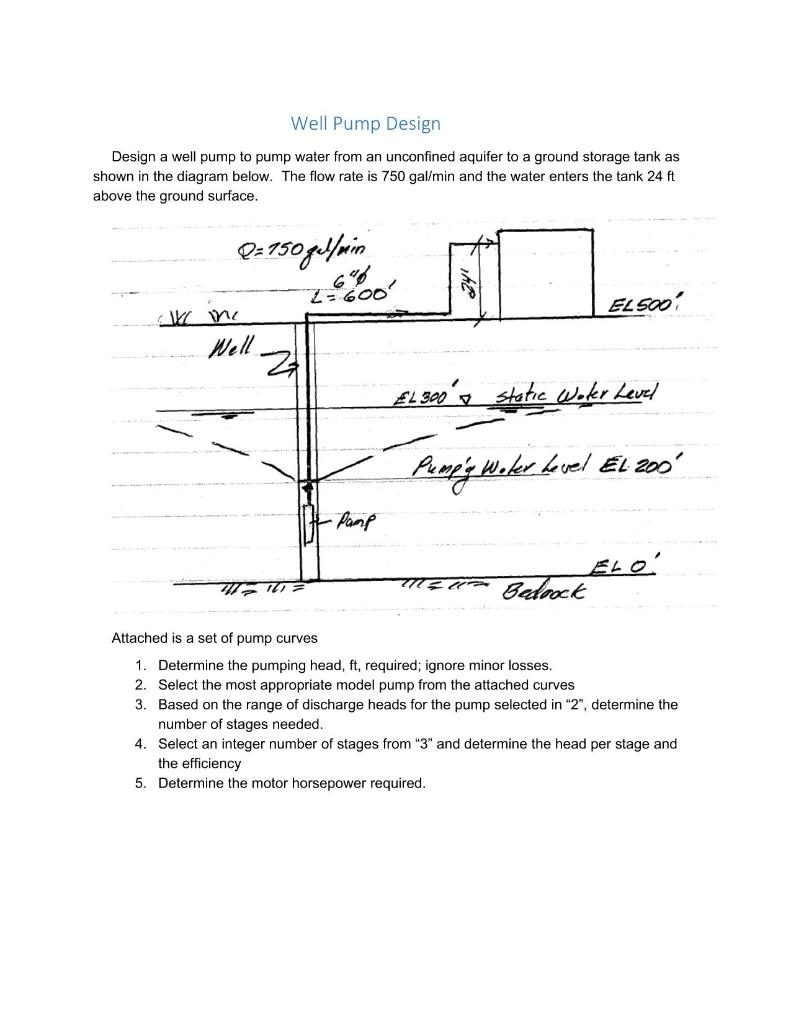 Well Pump Design
Design a well pump to pump water from an unconfined aquifer to a ground storage tank as
shown in the diagram below.  The flow rate is 750 gal/min and the water enters the tank 24 ft
above the ground surface.
Q=750 gal/min
6"φ
L=600'
24'
EL500'
Well
EL300' Static Water Level
Pump'g Water Level EL 200'
Pump
EL 0'
Bedrock
Attached is a set of pump curves
1. Determine the pumping head, ft, required; ignore minor losses.
2. Select the most appropriate model pump from the attached curves
3. Based on the range of discharge heads for the pump selected in “2”, determine the
number of stages needed.
4. Select an integer number of stages from “3” and determine the head per stage and
the efficiency
5. Determine the motor horsepower required.